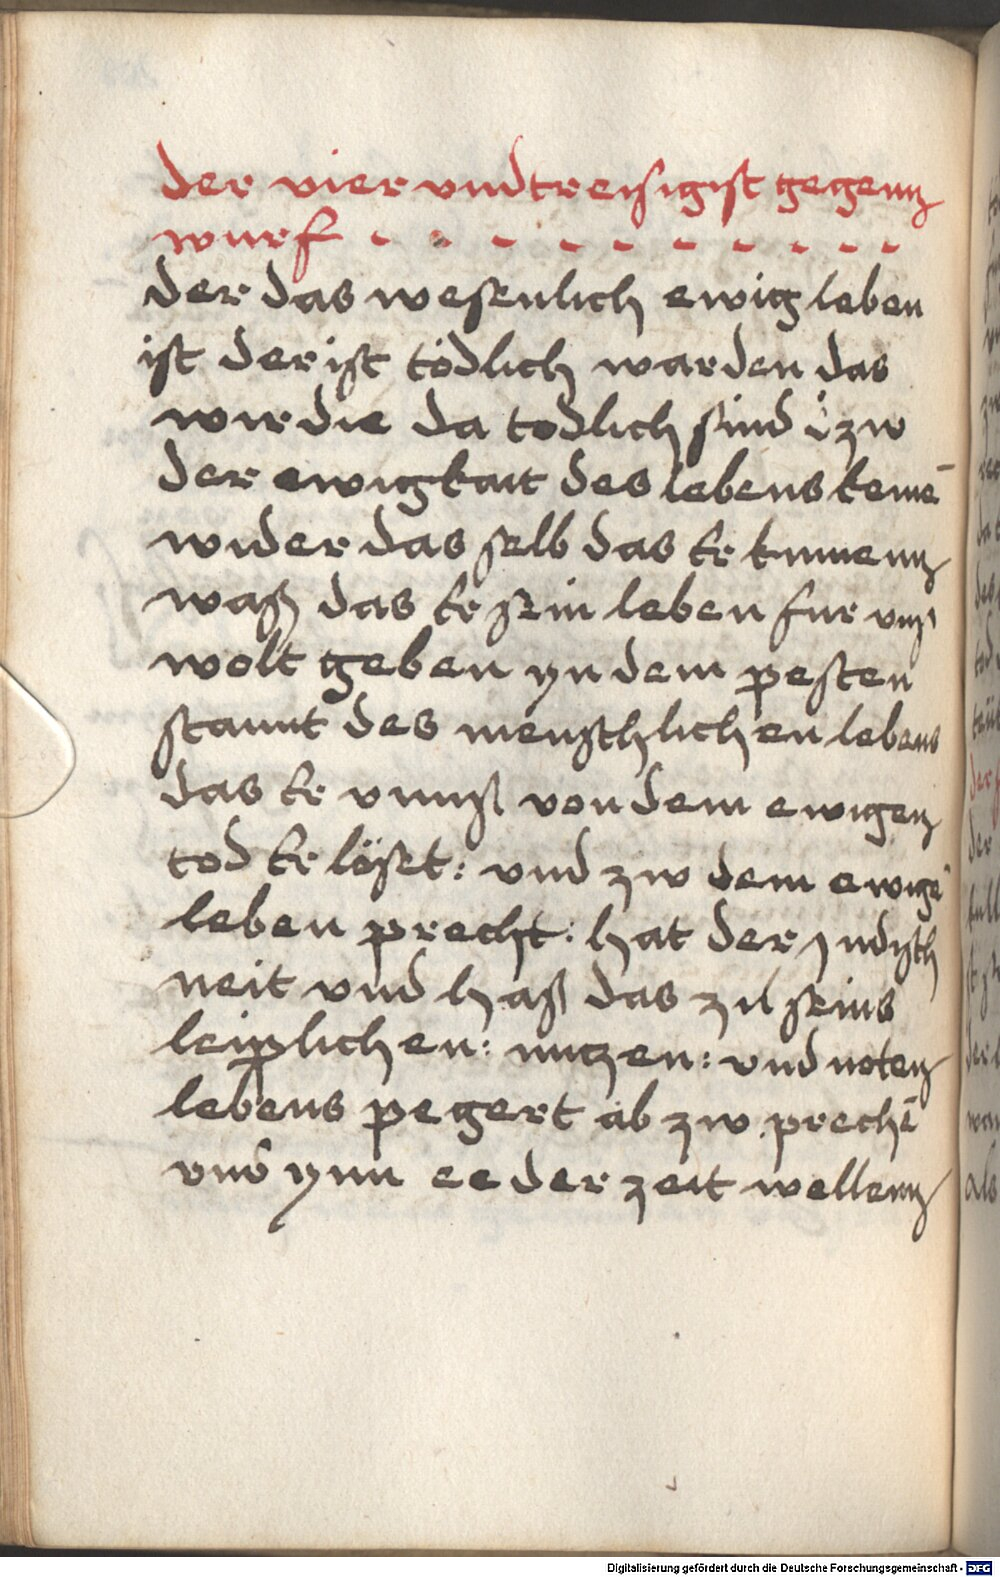 der vier vnd treisigist gegenn
wurf - - - - - - - - - -
der das wesenlich ewig leben
ist der ist tödlich warden das
wir die da todlich sind zw
der ewigkait des lebens kemē
wider das selb das er kumenn
waß das er sein leben fur vnß
wolt geben yn dem pesten
stannt des menschlichen lebens
das er vnnß von dem ewigen
tod er löset: vnd zw dem ewigē
leben precht: hat der Judisch
neit vnd haß das zil seins
leiplichen: nutzen: vnd noten
lebens pegert ab zw prechē
vnd ynn ee der zeit wellenn
Digitalisierung gefördert durch die Deutsche Forschungsgemeinschaft - DFG